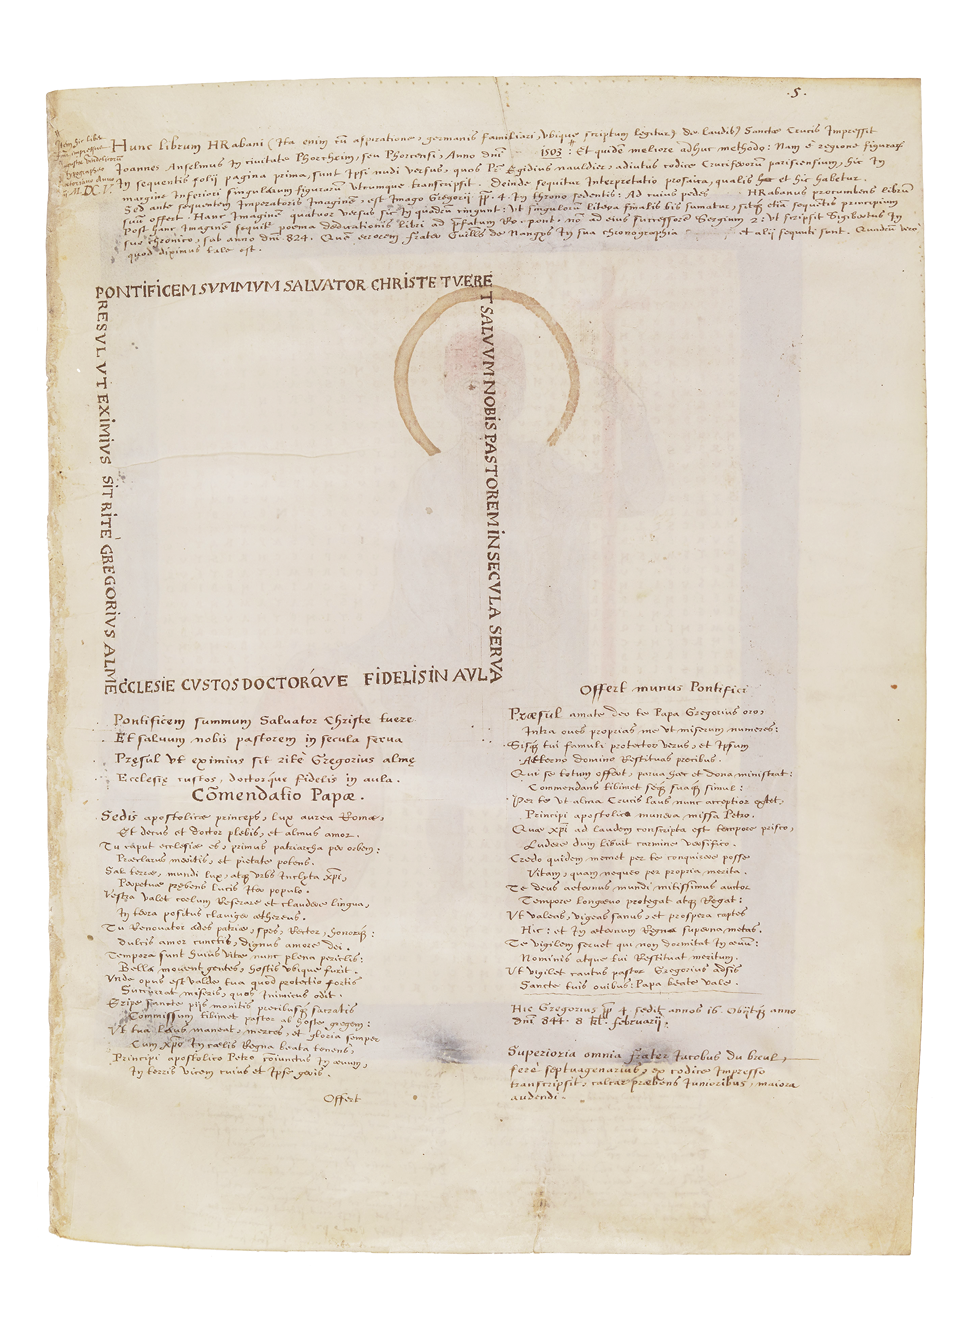 .5.
Hunc librum HRabani (Ita enim cū aspiratione, germanis familiari, Vbique scriptum legitur) de laudib9 Sanctæ Crucis Impressit
Joannes Anselmus In civitate Phorcheim, seu Phorcensi, Anno dnī 1503 : Et quidē meliore adhuc methodo: Nam è regione figuraꝝ
In sequentis folij pagina prima, sunt Ipsi nudi versus, quos Fr Egidius nauldier, adiutus codice Cruciferorum parisiensium, hic In
margine Inferiori singularum figurarum Vtrumque transcripsit. Deinde sequitur Interpretatio prosaica, qualis hær et hic habetur.
Sed ante sequentem Imperatoris Imaginē, est Imago Gregorij pp. 4 In throno sedentis: Ad cuius pedes HRabanus procumbens librū
suū offert. Hanc Imaginē quatuor versus sic In quadrū cingunt: Vt singulorū litera finalis bis sumatur, sitq3 etiā sequētis principium
Post hanc Imaginē sequit poema dedicationis libri ad præfatum Ro. pont. nō ad eius successorē Sergium 2: Vt scripsit Sigibertus In
suo chronico, sub anno dnī 824. Quē errorem frater Guills de Nangys In sua chronographia et alij sequuti sunt. Quadrū vero
quod diximus tale est.
Item hic liber
M.DC.I.
PONTIFICEM SVMMVM SALVATOR CHRISTE TVERE
RESVL VT EXIMIVS SIT RITE GREGORIVS ALME
T SALVVM NOBIS PASTOREM IN SECVLA SERVA
CCLESIE CVSTOS DOCTORQVE FIDELIS IN AVLA
Pontificem summum Salvator Christe tuere
Et salvum nobis pastorem in secula serva
Pręsul Vt eximius sit ritè Gregorius almę
Ecclesię custos, doctorq́ue fidelis in aula.
Cōmendatio Papæ.
Sedis apostolicæ princeps, lux aurea Romæ,
Et decus et doctor plebis, et almus amor.
Tu caput ecclesiæ es, primus patriarcha per orbem:
Præclarus meritis, et pietate potens.
Sal terræ, mundi lux, atq3 Vrbs Inclyta xp̄i,
Perpetuæ præbens lucis Iter populo.
Vestra valet cœlum Reserare et claudere lingua,
In terra positus claviger æthereus.
Tu Renovator ades patriæ, spes, Rector, honorq3:
Dulcis amor cunctis, dignus amore dei.
Tempora sunt huius vitæ nunc plena periclis:
Bella movent gentes, hostis Vbique furit.
Vnde opus est valde tua quod protectio fortis
Succurrat miseris, quos Inimicus odit.
Eripe sancte pijs monitis precibusq3 sacratis
Commissum tibimet pastor ab hoste gregem:
Vt tua laus maneat, merces, et gloria semper
Cum xp̄o In cælis Regna beata tenens,
Principi apostolico Petro coniunctus In ævum,
In terris Vicem cuius et Ipse geris.
Offert
Offert munus Pontifici
Præsul amate deo te Papa Gregorius oro,
Intra oves proprias me Vt miserum numeres:
Sisq3 tui famuli protector verus, et Ipsum
Æterno domino Restituas precibus.
Qui se totum offert, parva hæc et dona ministrat:
Commendans tibimet seq3 suaq3 simul:
Per te Vt alma Crucis laus nunc acceptior extet,
Principi apostolico munera missa Petro.
Quæ xp̄i ad laudem conscripta est tempore prisco,
Ludere dum libuit carmine versifico.
Credo quidem memet per te conquirere posse
Vitam, quam nequeo per propria merita.
Te deus æternus mundi mitissimus autor
Tempore longævo protegat atq3 Regat:
Vt valeas, vigeas sanus, et prospera captes
Hic: et In æternum Regna superna metas.
Te vigilem servet qui non dormitat In ævum:
Nominis atque tui Restituat meritum.
Vt vigilet cautus pastor Gregorius adsis
Sanctæ tuis ovibus: Papa beate vale.
Hic Gregorius pp 4 sedit annos 16. Obijtq3 anno
dnī 844. 8 kl. februarij.
Superiora omnia frater Jacobus du breul,
ferè septuagenarius, ex codice Impresso
transcripsit, calcar præbens Junioribus, maiora
audendi.